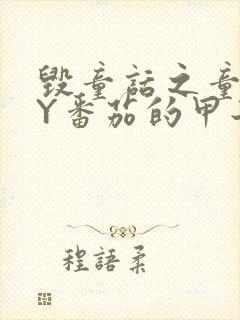 毁童话之童
Y番茄的甲
程語柔